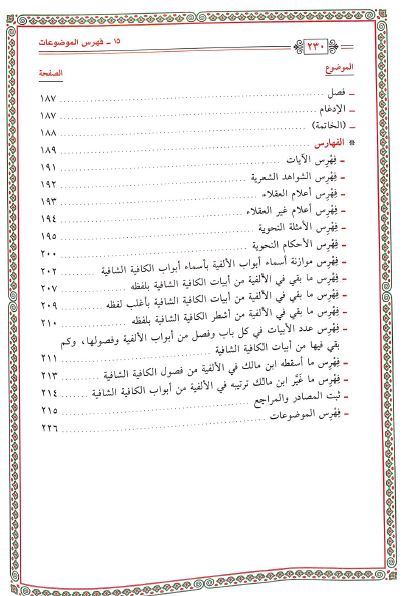 ٢٣٠
١٥ ـ فهرس الموضوعات
الموضوع الصفحة
ـ فصل ١٨٧
ـ الإدغام ١٨٧
ـ (الخاتمة) ١٨٨
* الفهارس ١٨٩
ـ فِهْرِس الآيات ١٩١
ـ فِهْرِس الشواهد الشعرية ١٩٢
ـ فِهْرِس أعلام العقلاء ١٩٣
ـ فِهْرِس أعلام غير العقلاء ١٩٤
ـ فِهْرِس الأمثلة النحوية ١٩٥
ـ فِهْرِس الأحكام النحوية ٢٠٠
ـ فِهْرِس موازنة أسماء أبواب الألفية بأسماء أبواب الكافية الشافية ٢٠٢
ـ فِهْرِس ما بقي في الألفية من أبيات الكافية الشافية بلفظه ٢٠٧
ـ فِهْرِس ما بقي في الألفية من أبيات الكافية الشافية بأغلب لفظه ٢٠٩
ـ فِهْرِس ما بقي في الألفية من أشطر الكافية الشافية بلفظه ٢١٠
ـ فِهْرِس عدد الأبيات في كل باب وفصل من أبواب الألفية وفصولها، وكم
بقي فيها من أبيات الكافية الشافية ٢١١
ـ فِهْرِس ما أسقطه ابن مالك في الألفية من فصول الكافية الشافية ٢١٣
ـ فِهْرِس ما غَيَّر ابن مالك ترتيبه في الألفية من أبواب الكافية الشافية ٢١٤
ـ ثبت المصادر والمراجع ٢١٥
ـ فِهْرِس الموضوعات ٢٢٦